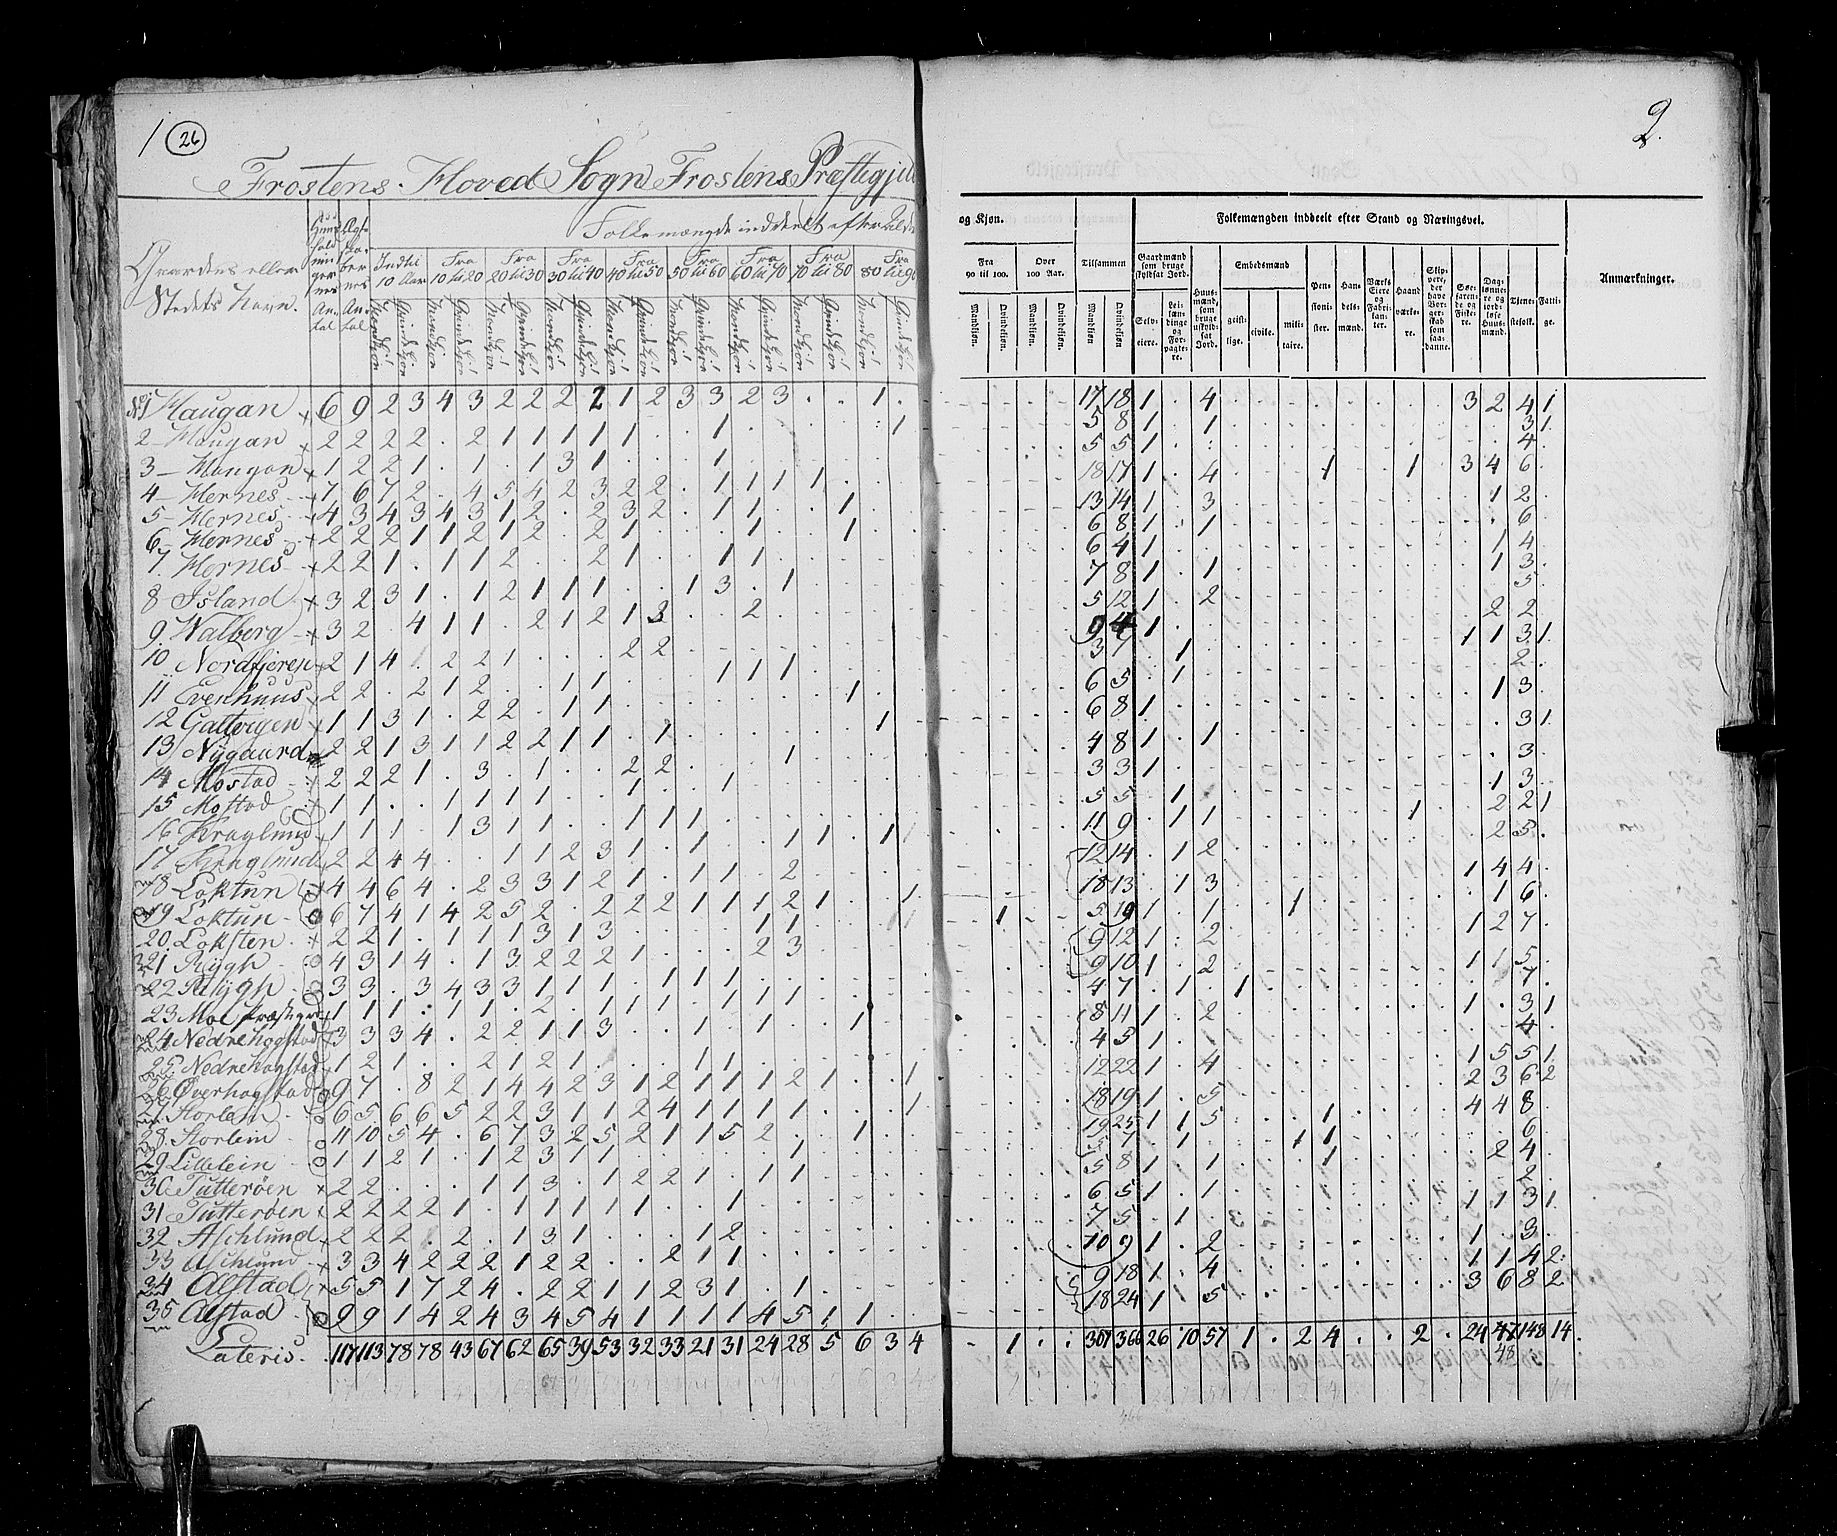 1 26
Frostens Hoved Sogn Frostens Præstegjeld
2.
Gaardens eller
Stedets Navn.
Folkemængde inddeelt efter Alder
og Kjøn.
Folkemængden inddeelt efter Stand og Næringsvei.
Indtil 10 Aar
Fra 10 til 20
Fra 20 til 30
Fra 30 til 40
Fra 40 til 50
Fra 50 til 60
Fra 60 til 70
Fra 70 til 80
Fra 80 til 90
Fra 90 til 100.
Over 100 Aar.
Tilsammen
Mandkiøn. Qvindekiøn. Mandkiøn. Qvindekiøn. Mandkiøn. Qvindekiøn.
Gaardmænd som bruge skyldsat Jord.
Selveiere.
Leilændinge og Forpagtere.
Huusmænd, som bruge uskyldsat Jord.
Embedsmænd
geistlige.
civile.
militaire.
Pensionister.
Handelsmænd.
Værks Eiere og Fabrikanter.
Haandværkere.
Skippere, der have Borgerskab som saadanne.
Søefarende og Fiskere.
Daglønnere og jordløse Huusmænd.
Tjenestefolk.
Fattige.
Anmærkninger.
No 1 Haugan 6 9 2 3 4 3 2 2 2 2 1 2 3 3 2 3 . . 1 . 17 18 1 . 4 3 2 4 1
2 Haugan 2 2 2 2 . 2 1 1 1 1 1 . . 1 5 8 1 . 1 3 1
3 Haugan 1 2 2 1 . 1 . 1 3 1 . . . 1 5 5 1 4
4 Hernes 7 6 7 2 . 4 5 4 2 3 2 2 . 1 1 1 1 18 17 1 . 4 1 1 3 4 6
5 Hernes 4 3 4 3 4 3 1 2 . 2 3 2 . 1 1 . . 1 13 14 1 . 3 1 2
6 Hernes 2 2 2 1 1 2 1 2 . 2 1 . . . 1 . . 1 6 8 1 . 1 6
7 Hernes 2 2 1 . 1 1 2 . . 2 1 . . 1 1 6 4 1 1 4
8 Island 3 2 3 1 . 1 2 1 1 1 . . 1 3 . 1 7 8 1 . 1 1 3
9 Walberg 3 2 . 4 1 1 . 2 1 2 1 3 . . 2 5 12 1 . 2 5
10 Nordfjerej 2 1 4 . 2 2 1 . . . 2 2 9 4 1 2 2
11 Evenhuus 2 2 . 2 1 2 . . 1 1 . . . 1 1 1 3 7 . 1 1 1 3 1
12 Galtvigen 1 1 3 1 . 2 2 . 1 1 . . . . . . . 1 6 5 . 1 2
13 Nygaard 2 2 1 3 1 1 2 2 1 1 . 1 . . . . . . 1 6 8 1 1 3
14 Mostad 2 2 2 1 . 3 . 1 . . 2 2 . . . 1 4 8 1 . 1 3 1
15 Mostad 1 1 . . 1 1 1 1 . . 1 . . 1 3 3 1 3
16 Kraglund 1 1 1 . 1 3 1 1 . . 1 1 1 5 5 . 1 1 3
17 2 2 4 4 . . 1 1 2 3 1 . 1 . . 1 1 1 . 1 11 9 . 1 1 1 2 2 1
18 Loktun 4 4 6 4 . 2 3 3 1 2 1 . 1 1 . 2 12 14 . 1 2 2 5
19 Loktun 6 7 4 1 4 2 5 2 . 2 2 2 1 1 1 2 1 . . 1 18 13 . 1 3 1 4 4
20 Loksten 2 2 1 . 1 1 1 3 1 3 . . . . 1 1 1 5 19 1 . 1 1 1 6
21 Rygh 4 3 1 4 . 1 3 2 2 2 1 . . . 2 3 9 12 1 . 2 1 2 7
22 Rygh 3 3 . 3 4 3 3 1 1 1 . 1 1 1 9 10 1 . 2 1 1 5
23 Moe Præstegrd 1 1 1 . 1 1 . 2 . 1 1 1 . 1 1 4 7 . 1 . 1 7
24 Nedrehogstad 3 3 3 4 . 2 2 1 1 3 . . 1 . 1 . . 1 8 11 1 . 2 1 . 3 1
25 Nedrehogstad 1 2 1 . . 2 1 2 1 . . . 1 1 4 5 1 4
26 Øverhogstad 9 7 . 8 2 1 4 4 2 3 1 2 1 1 1 2 1 . . 1 12 22 1 . 4 1 5 5 1
27 Storlein 6 5 6 6 5 2 2 3 1 1 2 4 1 1 1 1 . . . 1 18 19 1 . 5 2 3 6 2
28 Storlein 11 10 5 4 . 6 7 3 2 5 2 1 1 5 2 . . 1 19 25 1 1 5 1 4 4 8
29 Lillelein 1 1 2 1 . 1 2 3 1 1 . . . . . 1 5 7 . 1 1 1 6
30 Tutterøen 2 2 . . . 1 1 3 . 1 2 2 1 . 1 1 5 8 1 . 1 1 2 4
31 Tutterøen 2 2 2 2 1 . 1 1 1 1 1 . . 1 6 5 1 . 1 2
32 Aschlund 2 2 2 . 2 . 1 3 1 . . . 1 2 7 5 . 1 1 1 3 1
33 Aschlund 3 3 4 2 2 2 1 2 2 . . 2 1 1 10 9 1 . 2 1 . 3
34 Alstad 5 5 1 7 2 4 . 2 2 1 1 2 3 1 . 1 9 18 1 . 4 1 1 4 2
35 Alstad 9 9 1 4 2 4 3 4 5 4 1 1 1 1 4 5 1 1 18 24 1 . 5 3 6 8 2
Lateris. 117 113 78 78 43 67 62 65 39 53 32 33 21 31 24 28 5 6 3 4 . 1 . . 307 366 26 10 57 1 . 2 4 . . 2 . 24 47 148 14
48